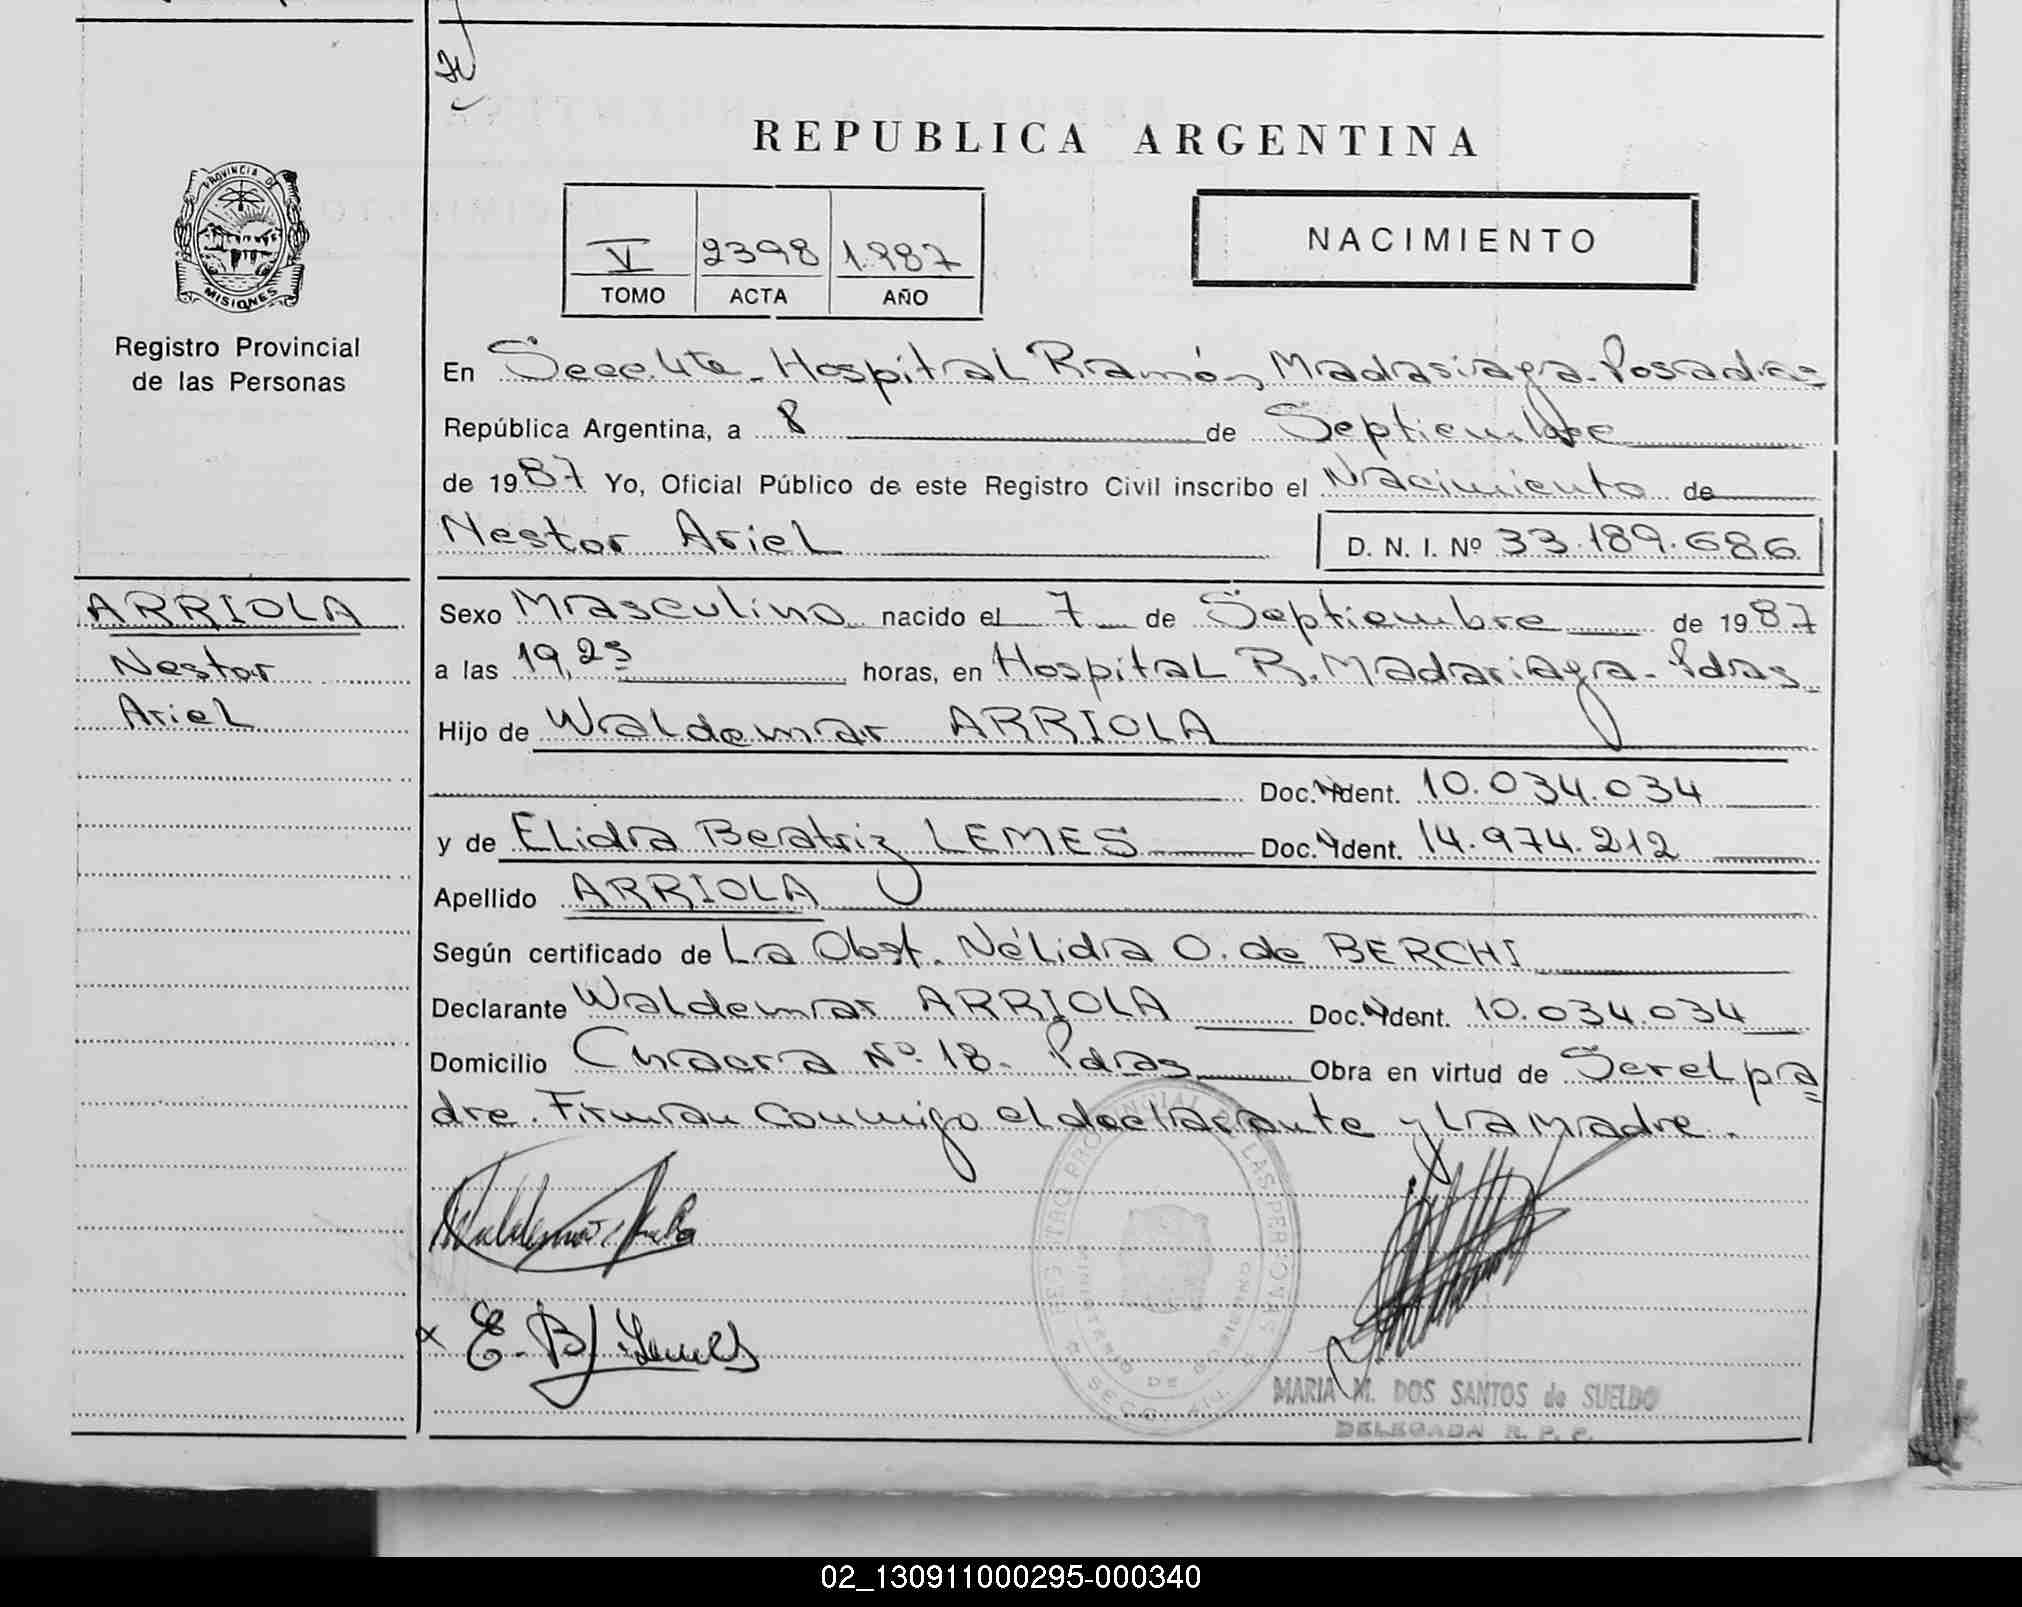 REPUBLICA ARGENTINA
PROVINCIA DE
MISIONES
Registro Provincial
de las Personas
V 2398 1.987
TOMO ACTA AÑO
NACIMIENTO
En Secc. 4ta - Hospital Ramón Madariaga - Posadas
República Argentina, a 8 de Septiembre
de 1987 Yo, Oficial Público de este Registro Civil inscribo el Nacimiento de
Nestor Ariel D. N. I. Nº 33.189.686
ARRIOLA
Nestor
Ariel
Sexo Masculino nacido el 7 de Septiembre de 1987
a las 19,25 horas, en Hospital R. Madariaga - Pdas
Hijo de Waldemar ARRIOLA
Doc. Ident. 10.034.034
y de Elida Beatriz LEMES Doc. Ident. 14.974.212
Apellido ARRIOLA
Según certificado de La Obst. Nélida O. de BERCHI
Declarante Waldemar ARRIOLA Doc. Ident. 10.034.034
Domicilio Chacra Nº 18 - Pdas Obra en virtud de Ser el pa=
dre. Firman conmigo el declarante y la Madre.
REGISTRO PROVINCIAL DE LAS PERSONAS
MINISTERIO DE GOBIERNO
E. B. Lemes
MARIA M. DOS SANTOS de SUELDO
DELEGADA R. P. P.
02_130911000295-000340